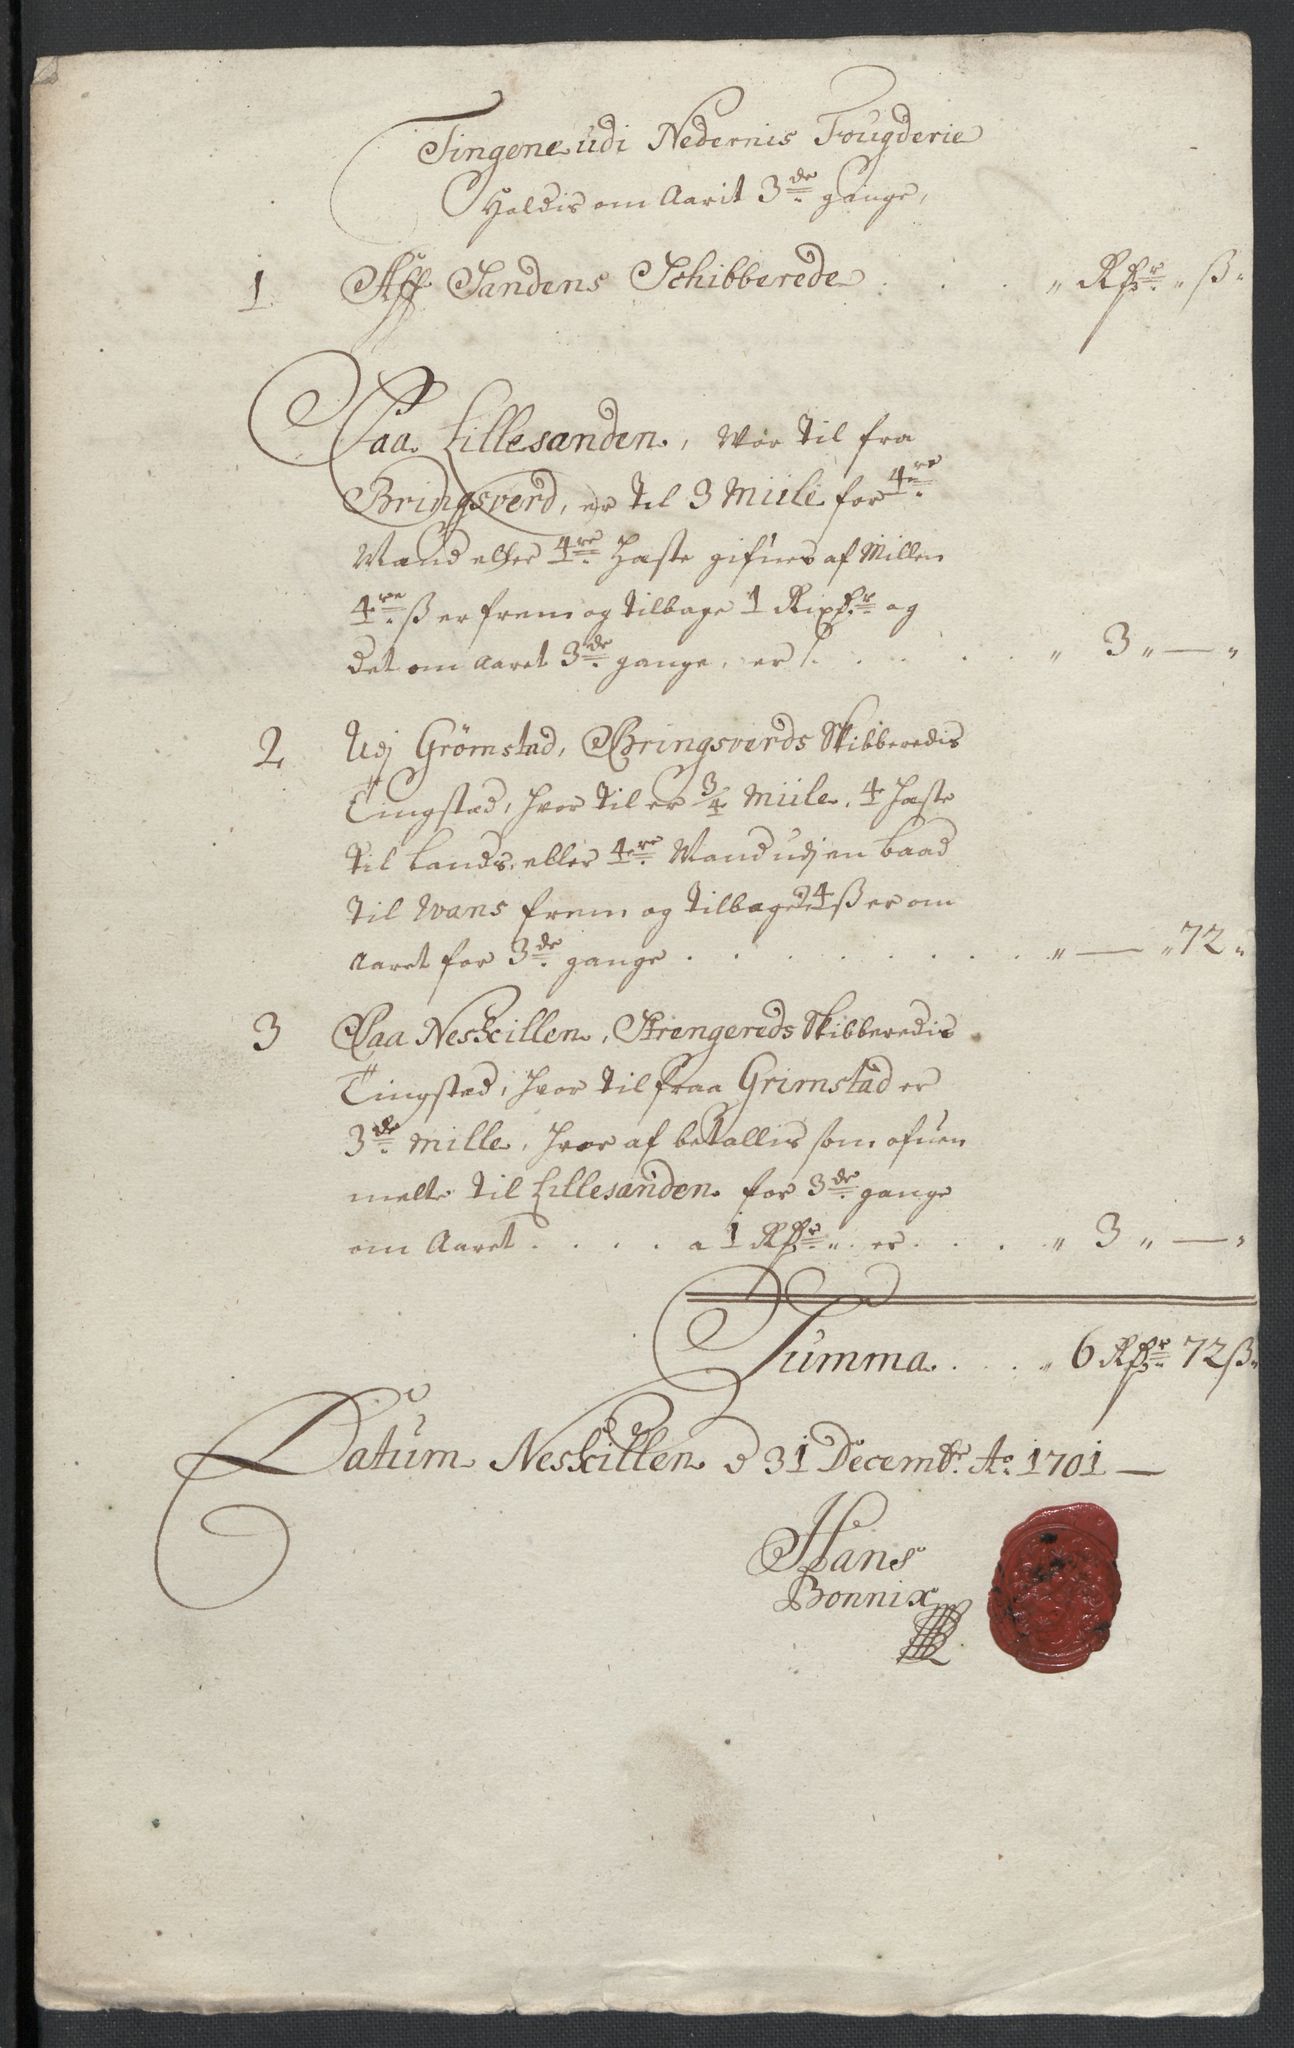 Tingene udi Nedernis Fougderie
Holdis om Aarit 3de gange,
1 Aff Sandens Schibberede . . . " Rdr " ß "
Paa Lillesanden, Wor til fra
Bringsverd, er til 3 Miile for 4re
Mand eller 4re Hæste gifues af Millen
4re ß er frem og tilbage 1 Rixdr og
det om Aaret 3de gange, er . . . . " 3 " — "
2 Udj Grömstad, Bringsverds Skibberedis
Tingstæd, hvor til er 3/4 Miile, 4 Hæste
til Lands, eller 4re Mand udj en baad
til Vans frem og tilbage 24 ß er om
Aaret for 3de gange . . . . . . . " — " 72 "
3 Paa Neskillen, Strengereds Skibberedis
Tingstæd, hvor til fraa Grimstad er
3de mille, hvor af betallis som ofuen
melte til Lillesanden for 3de gange
om Aaret . . . . a 1 Rdr " er . . . . " 3 " — "
Summa . . . " 6 Rdr 72 ß "
Datum Neskillen d 31 Decembr Ao 1701 —
Hans
Bonnix